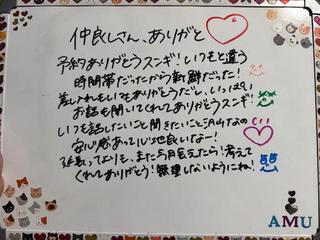 仲良しさん、ありがと
予約ありがとうスンギ！いつもと違う
時間帯だったから新鮮だった！
差し入れもいつもありがとうだし、いっぱい
お話も聞いてくれてありがとうスンギ！
いつも話したいこと聞きたいこと沢山なの
安心感あって心地良いなー！
延長ってよりも、また5月会えたら！考えて
くれてありがとう！無理しないようにね！
AMU